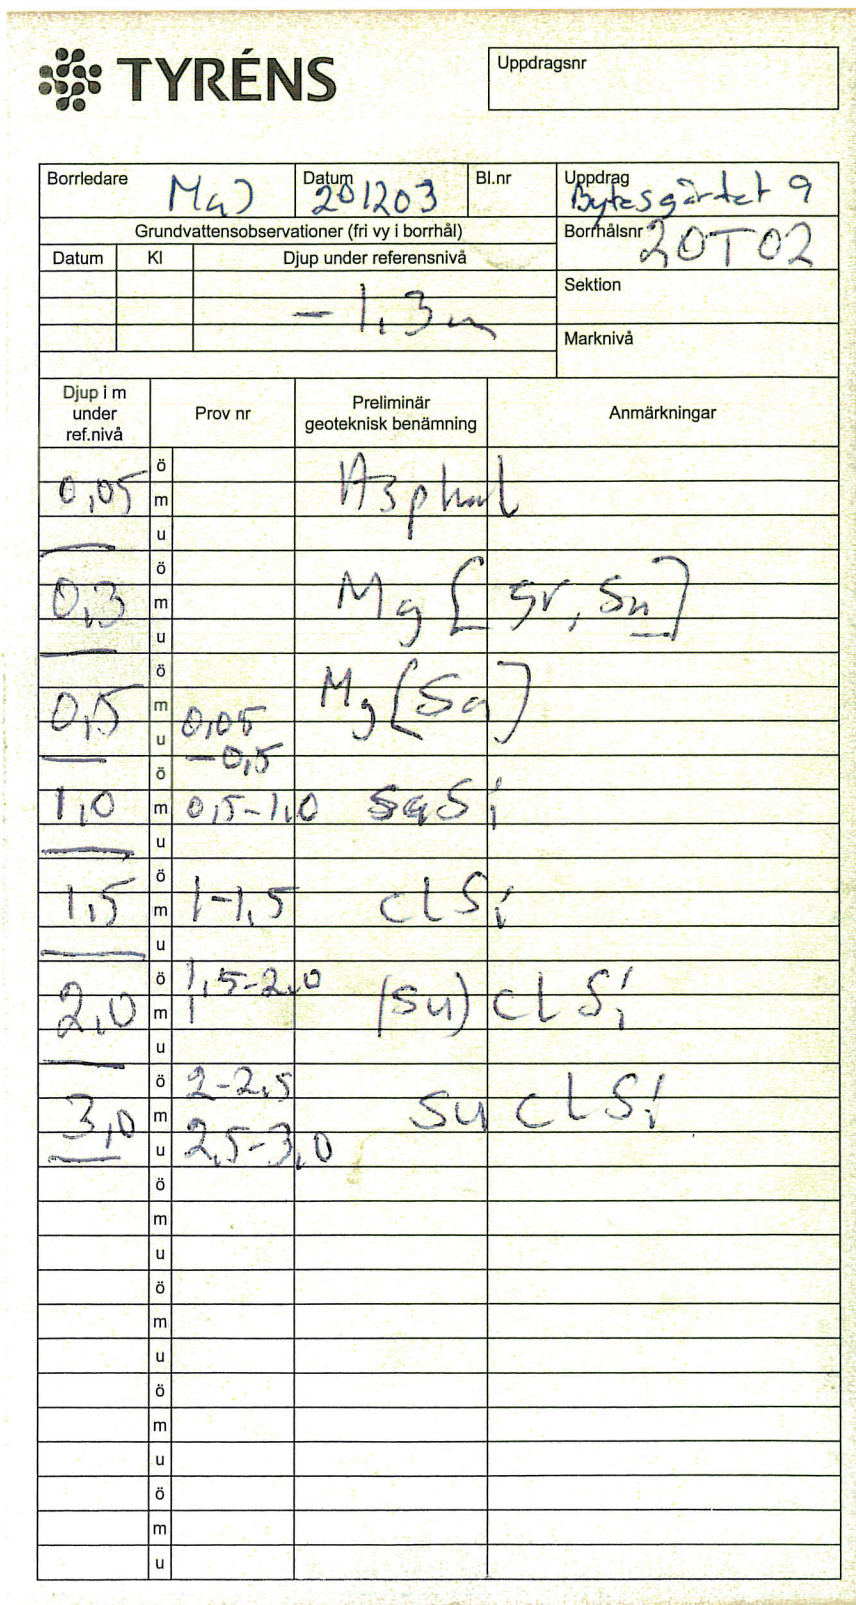 TYRÉNS
Uppdragsnr
Borrledare MaJ
Datum 201203
Bl.nr
Uppdrag Bytesgärdet 9
Grundvattensobservationer (fri vy i borrhål)
Borrhålsnr 20T02
Datum Kl Djup under referensnivå
Sektion
- 1,3 m
Marknivå
Djup i m under ref.nivå
Prov nr
Preliminär geoteknisk benämning
Anmärkningar
ö
0,05 m Asphal
u
ö
0,3 m Mg [gr, Sa]
u
ö
0,5 m Mg [Sa]
u 0,05
-0,5
ö
1,0 m 0,5-1,0 saSi
u
ö
1,5 m 1-1,5 clSi
u
ö 1,5-2,0
2,0 m (su) cl Si
u
ö 2-2,5
3,0 m su cl Si
u 2,5-3,0
ö
m
u
ö
m
u
ö
m
u
ö
m
u